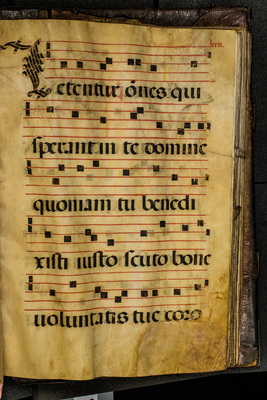 Letentur ōnes qui
sperant in te domine
quoniam tu benedi
xisti iusto scuto bone
voluntatis tue coro